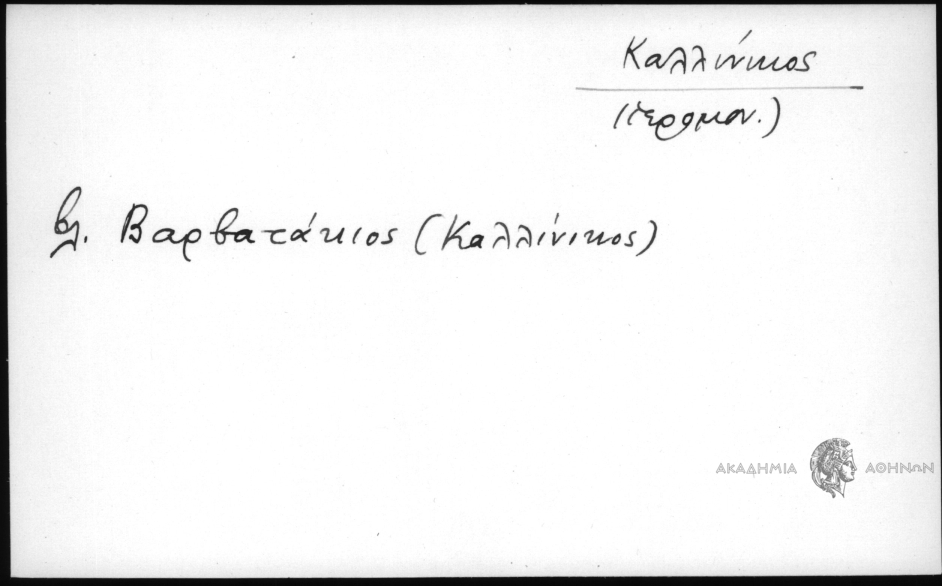 Καλλίνικος
(ἱερομον.)
βλ. Βαρβατάκιος (Καλλίνικος)
ΑΚΑΔΗΜΙΑ ΑΘΗΝΩΝ